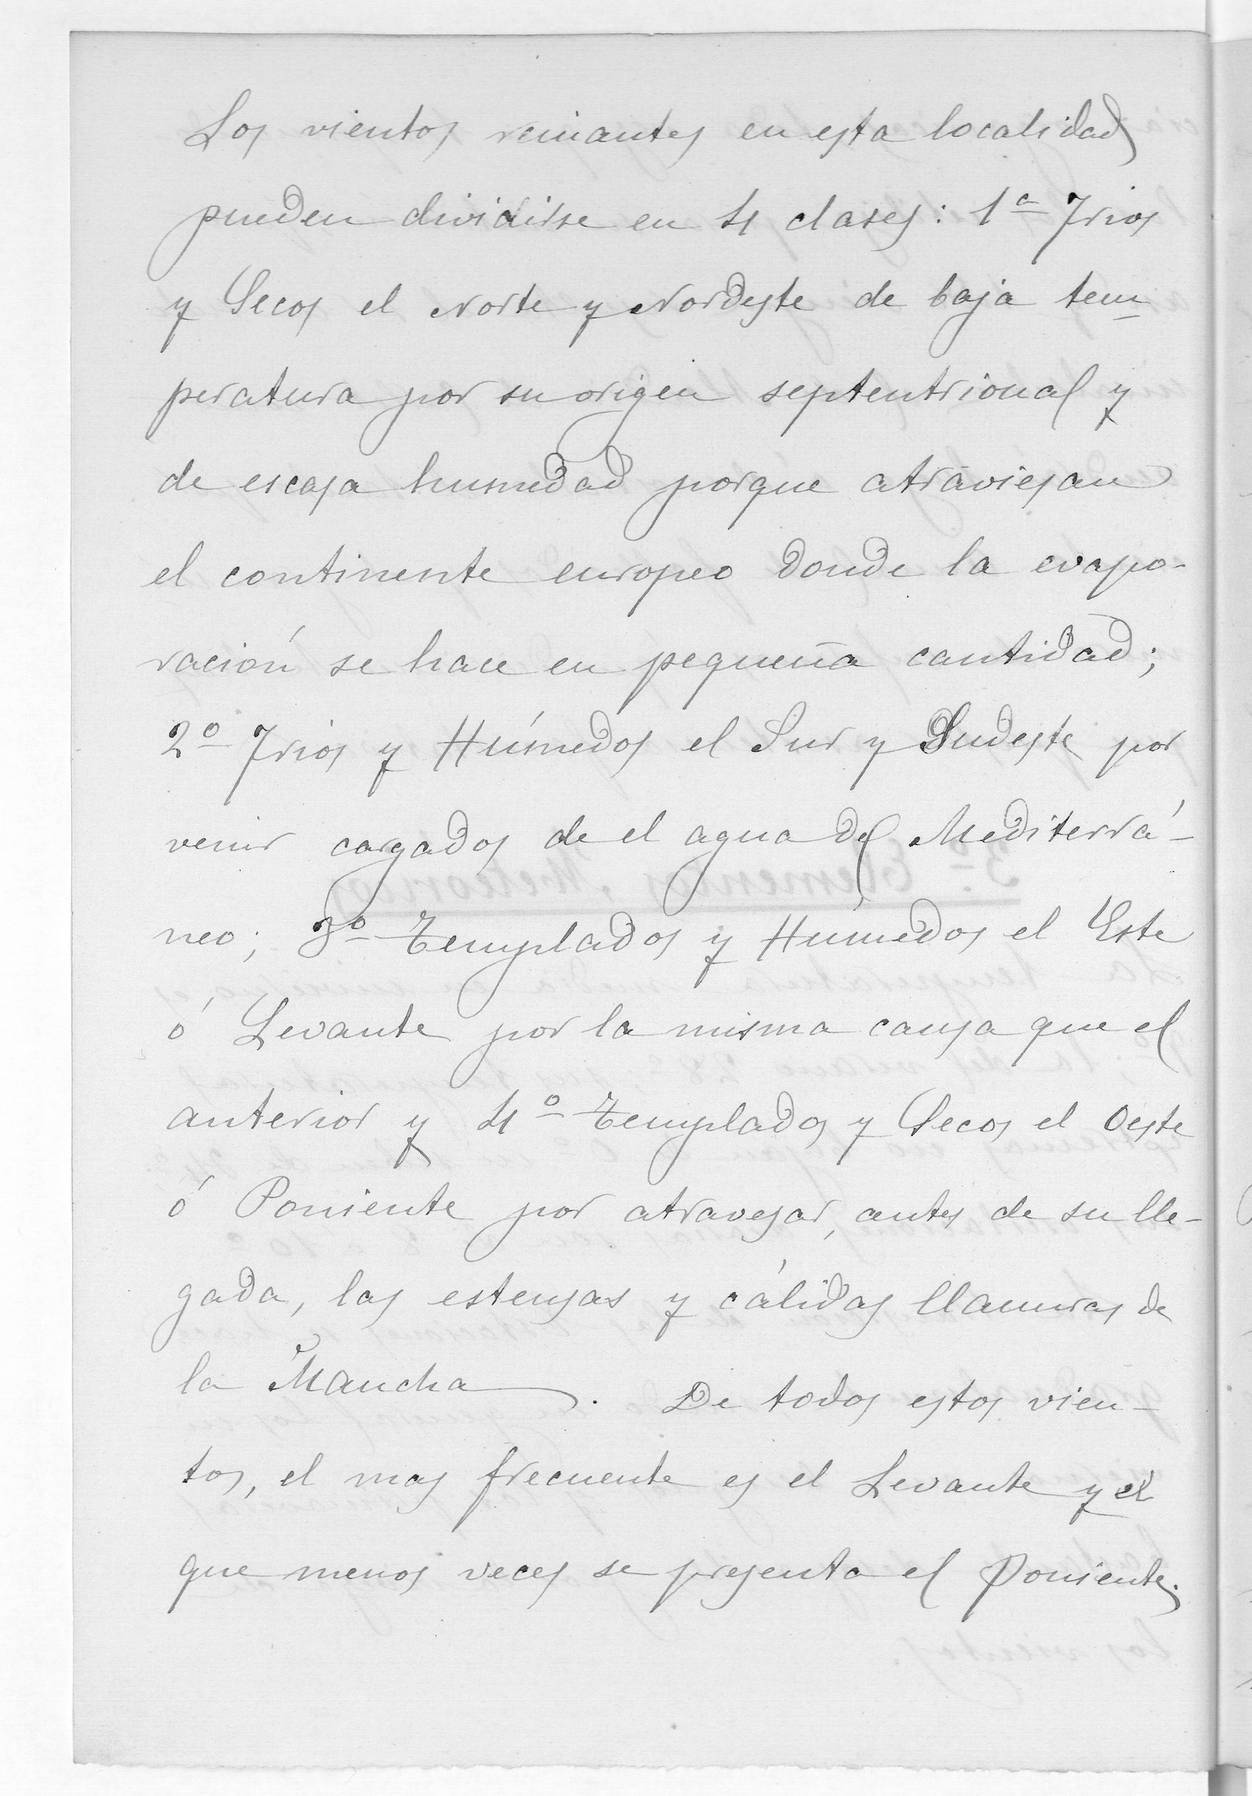 Los vientos reinantes en esta localidad
pueden dividirse en 4 clases: 1ª Frios
y Secos el Norte y Nordeste de baja tem
peratura por su origen septentrional y
de escasa humedad porque atraviesan
el continente europeo donde la evapo-
ración se hace en pequeña cantidad;
2º Frios y Húmedos el Sur y Sudeste por
venir cargados de el agua del Mediterrá-
neo; 3º Templados y Húmedos el Este
ó Levante por la misma causa que el
anterior y 4º Templados y Secos el Oeste
ó Poniente por atravesar, antes de su lle-
gada, las estensas y cálidas llanuras de
la Mancha. De todos estos vien-
tos, el mas frecuente es el Levante y el
que menos veces se presenta el Poniente.